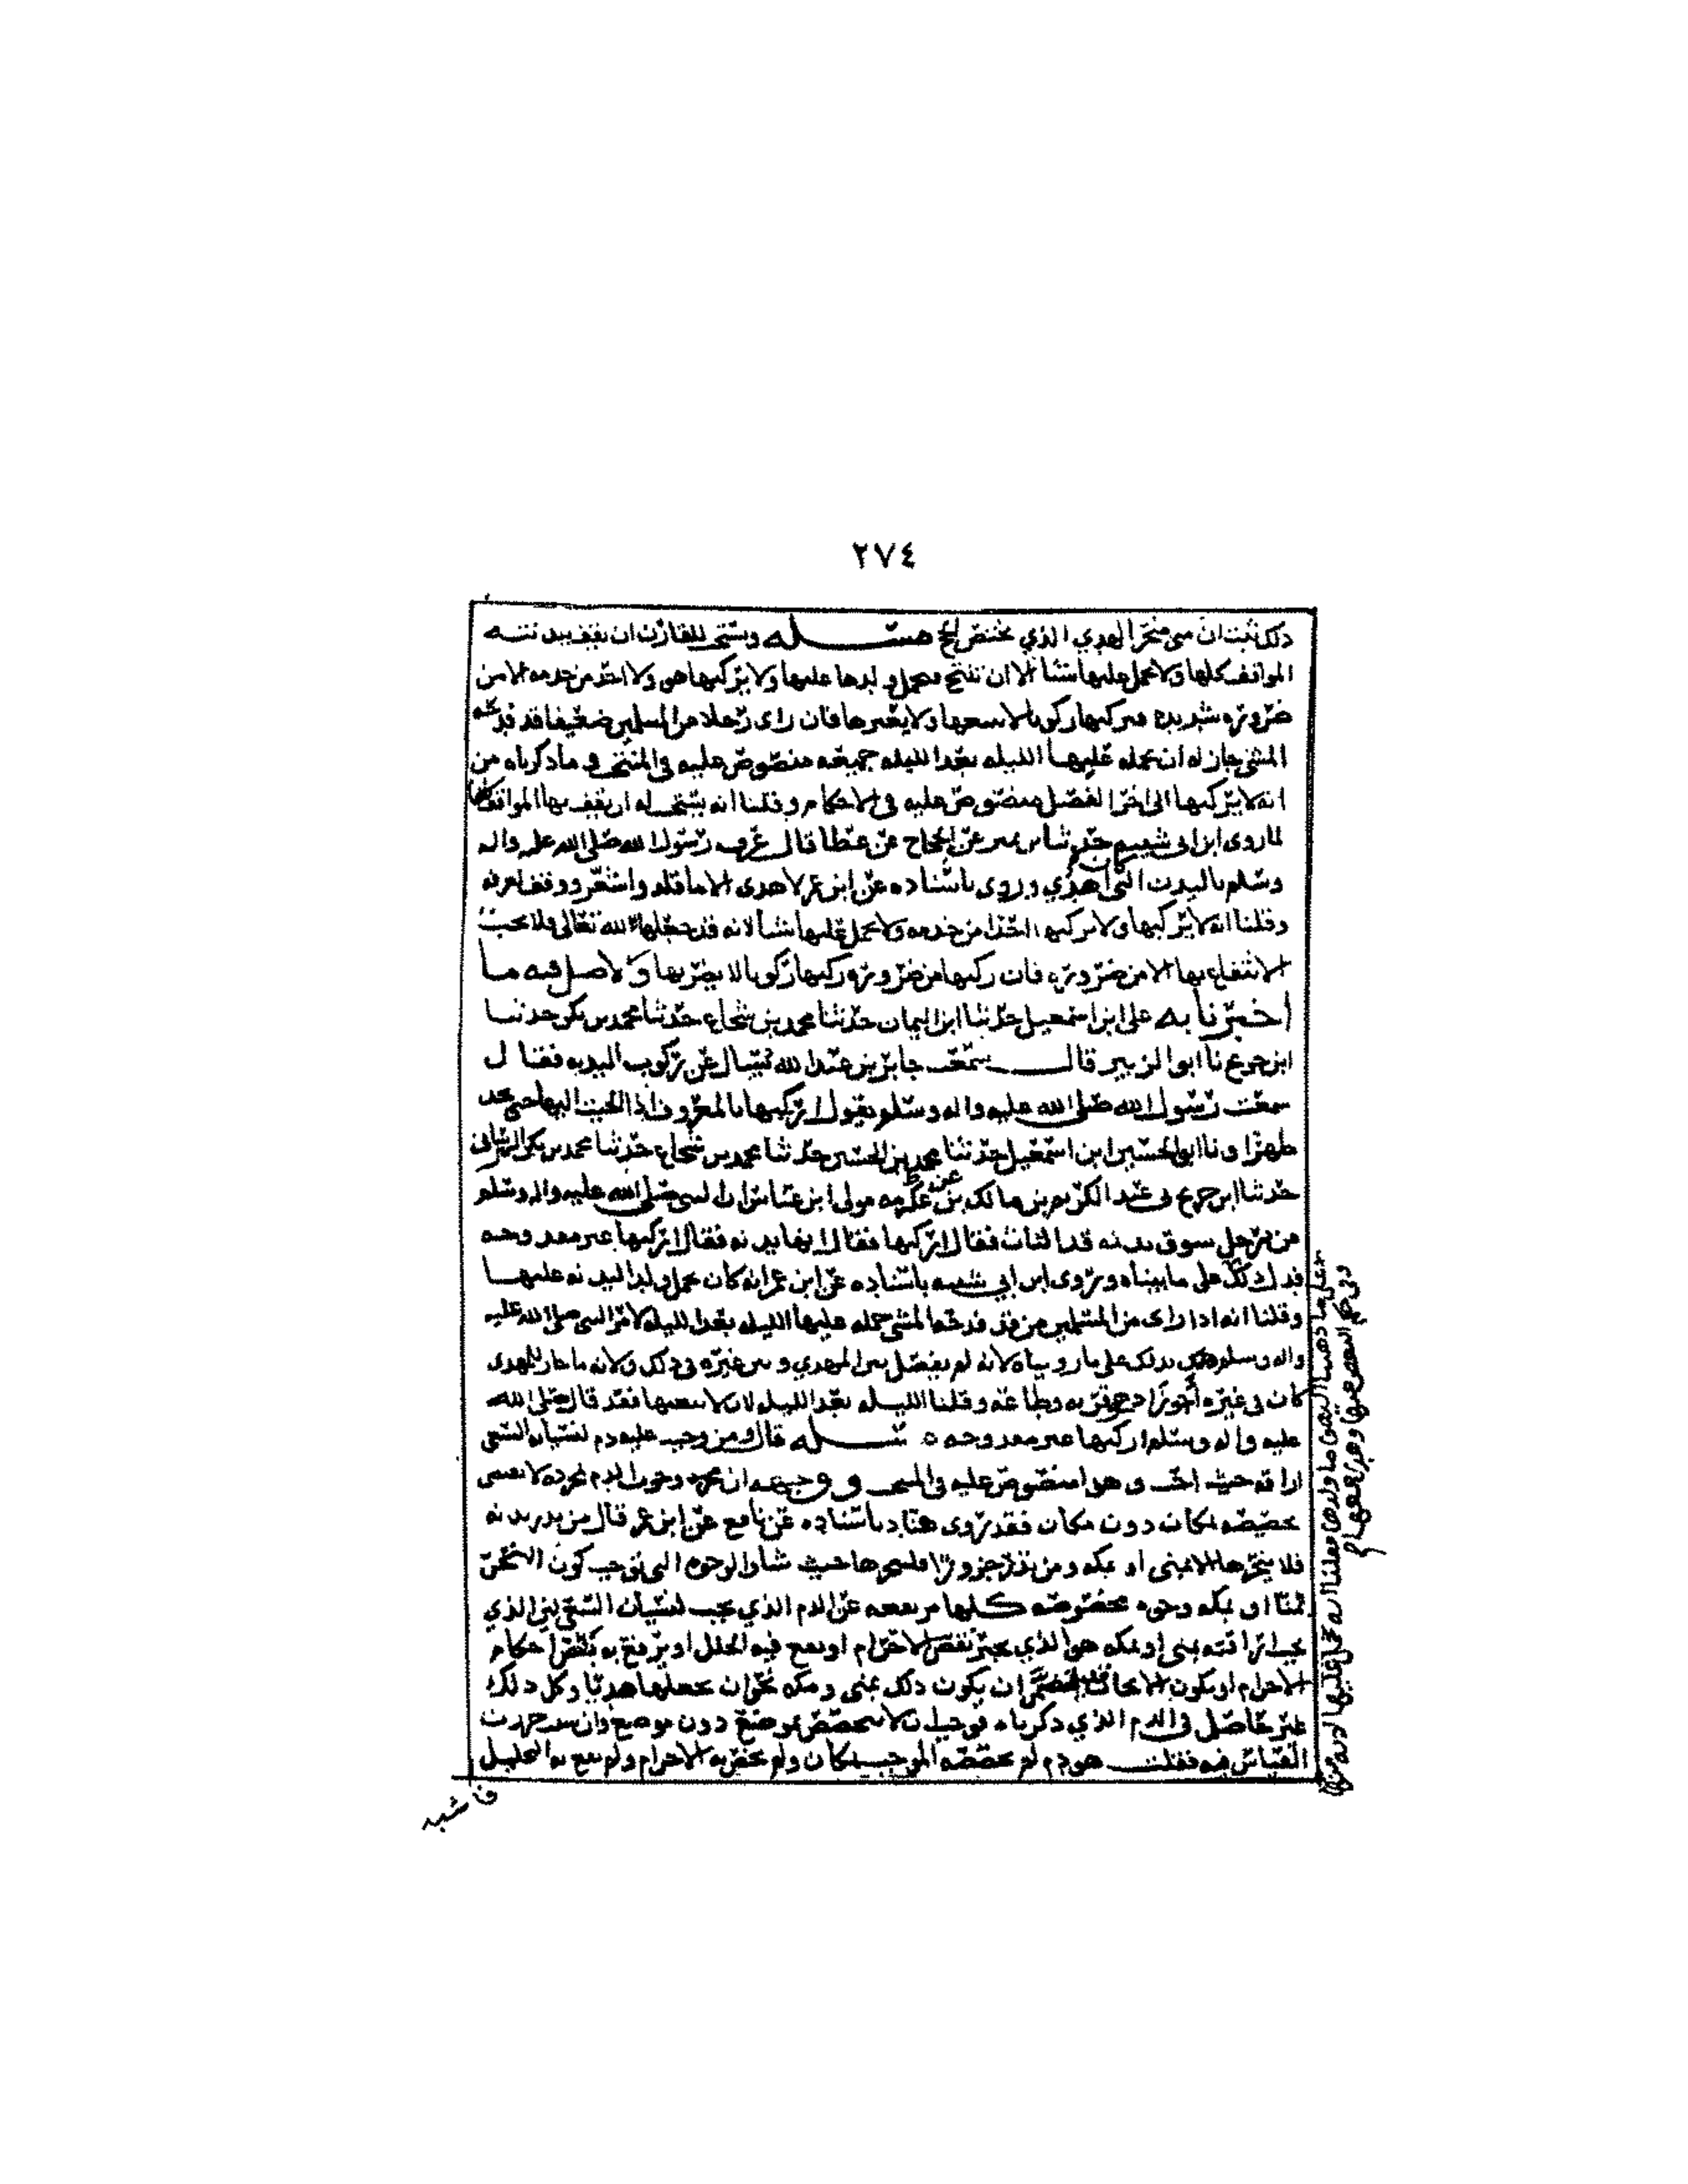 ٢٧٤
ذلك ثبت ان منى منحر الهدي الذي يختص الحج مسئله ويستحب للقارن ان يقف ببدنته
المواقف كلها ولا يحمل عليها شيئا الا ان تنتج فيحمل ولدها عليها ولا يركبها هو ولا احد من خدمه الا من
ضروره شديده فيركبها ركوبا لا يتعبها ولا يعقرها فان راى رجلا من المسلمين ضعيفا قد فدحه
المشي جاز له ان يحمله عليها الليله بعد الليله جميعه منصوص عليه في المنتخب ما ذكرناه من
انه لا يركبها الى اخر الفصل منصوص عليه في الاحكام وقلنا انه يستحب له ان يقف بها المواقف كلها
لما روى ابن ابي شيبه حدثنا عن الحجاج عن عطا قال عرف رسول الله صلى الله عليه واله
وسلم بالبدن التي كان اهدى وروى باسناده عن ابن عمر لا هدى الا ما قلد واشعر ووقف بعرفه
وقلنا انه لا يركبها ولا يركبها احد من خدمه ولا يحمل عليها شيئا لانه قد جعلها لله تعالى فلا يجب
الانتفاع بها الا من ضروره فان ركبها من ضروره ركبها ركوبا لا يضر بها والاصل فيه ما
اخبرنا به علي ابن اسمعيل حدثنا ابن اليمان حدثنا محمد بن شجاع حدثنا محمد بن بكر حدثنا
ابن جريج نا ابو الزبير قال سمعت جابر بن عبد الله يسال عن ركوب البدنه فقال
سمعت رسول الله صلى الله عليه واله وسلم يقول اركبها بالمعروف اذا الجيت اليها حتى تجد
ظهرا ونا ابو الحسين ابن اسمعيل حدثنا محمد بن الحسين حدثنا محمد بن شجاع حدثنا محمد بن بكر
حدثنا ابن جريج عن عبد الكريم بن مالك عن عكرمه مولى ابن عباس ان النبي صلى الله عليه واله وسلم
مر برجل يسوق بدنه قد فقال اركبها فقال انها بدنه فقال اركبها غير مفدوحه
فدل ذلك على ما بيناه وروى ابن ابي شيبه باسناده عن ابن عمر انه كان يحمل ولد البدنه عليها
وقلنا انه اذا راى من المسلمين من قد فدحه المشي حمله عليها الليله بعد الليله لامر النبي صلى الله عليه
واله وسلم بذلك على ما رويناه لانه لم يفصل بين المهدي وبين غيره في ذلك ولانه ما جاز للمهدي
كان في غيره أجوز اذ هو قربه وطاعه وقلنا الليله بعد الليله لان لا يتعبها فقد قال صلى الله
عليه واله وسلم اركبها غير مفدوحه ه مسئله قال ومن وجب عليه دم لنسيان السعي
اراقه حيث احب وهذا منصوص عليه في المنتخب ووجهه ان مجرد وجوب الدم بمجرده لا يقتضي
تخصيصه بمكان دون مكان فقد روى هناد باسناده عن نافع عن ابن عمر قال من نذر بدنه
فلا ينحرها الا بمنى او بمكه ومن نذر جزورا فلينحرها حيث شاء والوجوه التي توجب كون النحر
بمنا او بمكه وجوه مخصوصه كلها مرتفعه عن الدم الذي يجب لنسيان السعي لان الذي
يجب اراقته بمنى او بمكه هو الذي يجبر نقص الاحرام او يقع فيه الحلل او يرتفع به بعض احكام
الاحرام او يكون الايجاب ان يكون ذلك بمنى ومكه نحو ان يجعلها هديا وكل ذلك
غير حاصل في الدم الذي ذكرناه فوجب ان لا يتخصص بموضع دون موضع وان حررت
القياس فيه فقلت هو دم لم يخصصه الموجب بمكان ولم يختص به الاحرام ولم يقع به التحليل
فاشبه